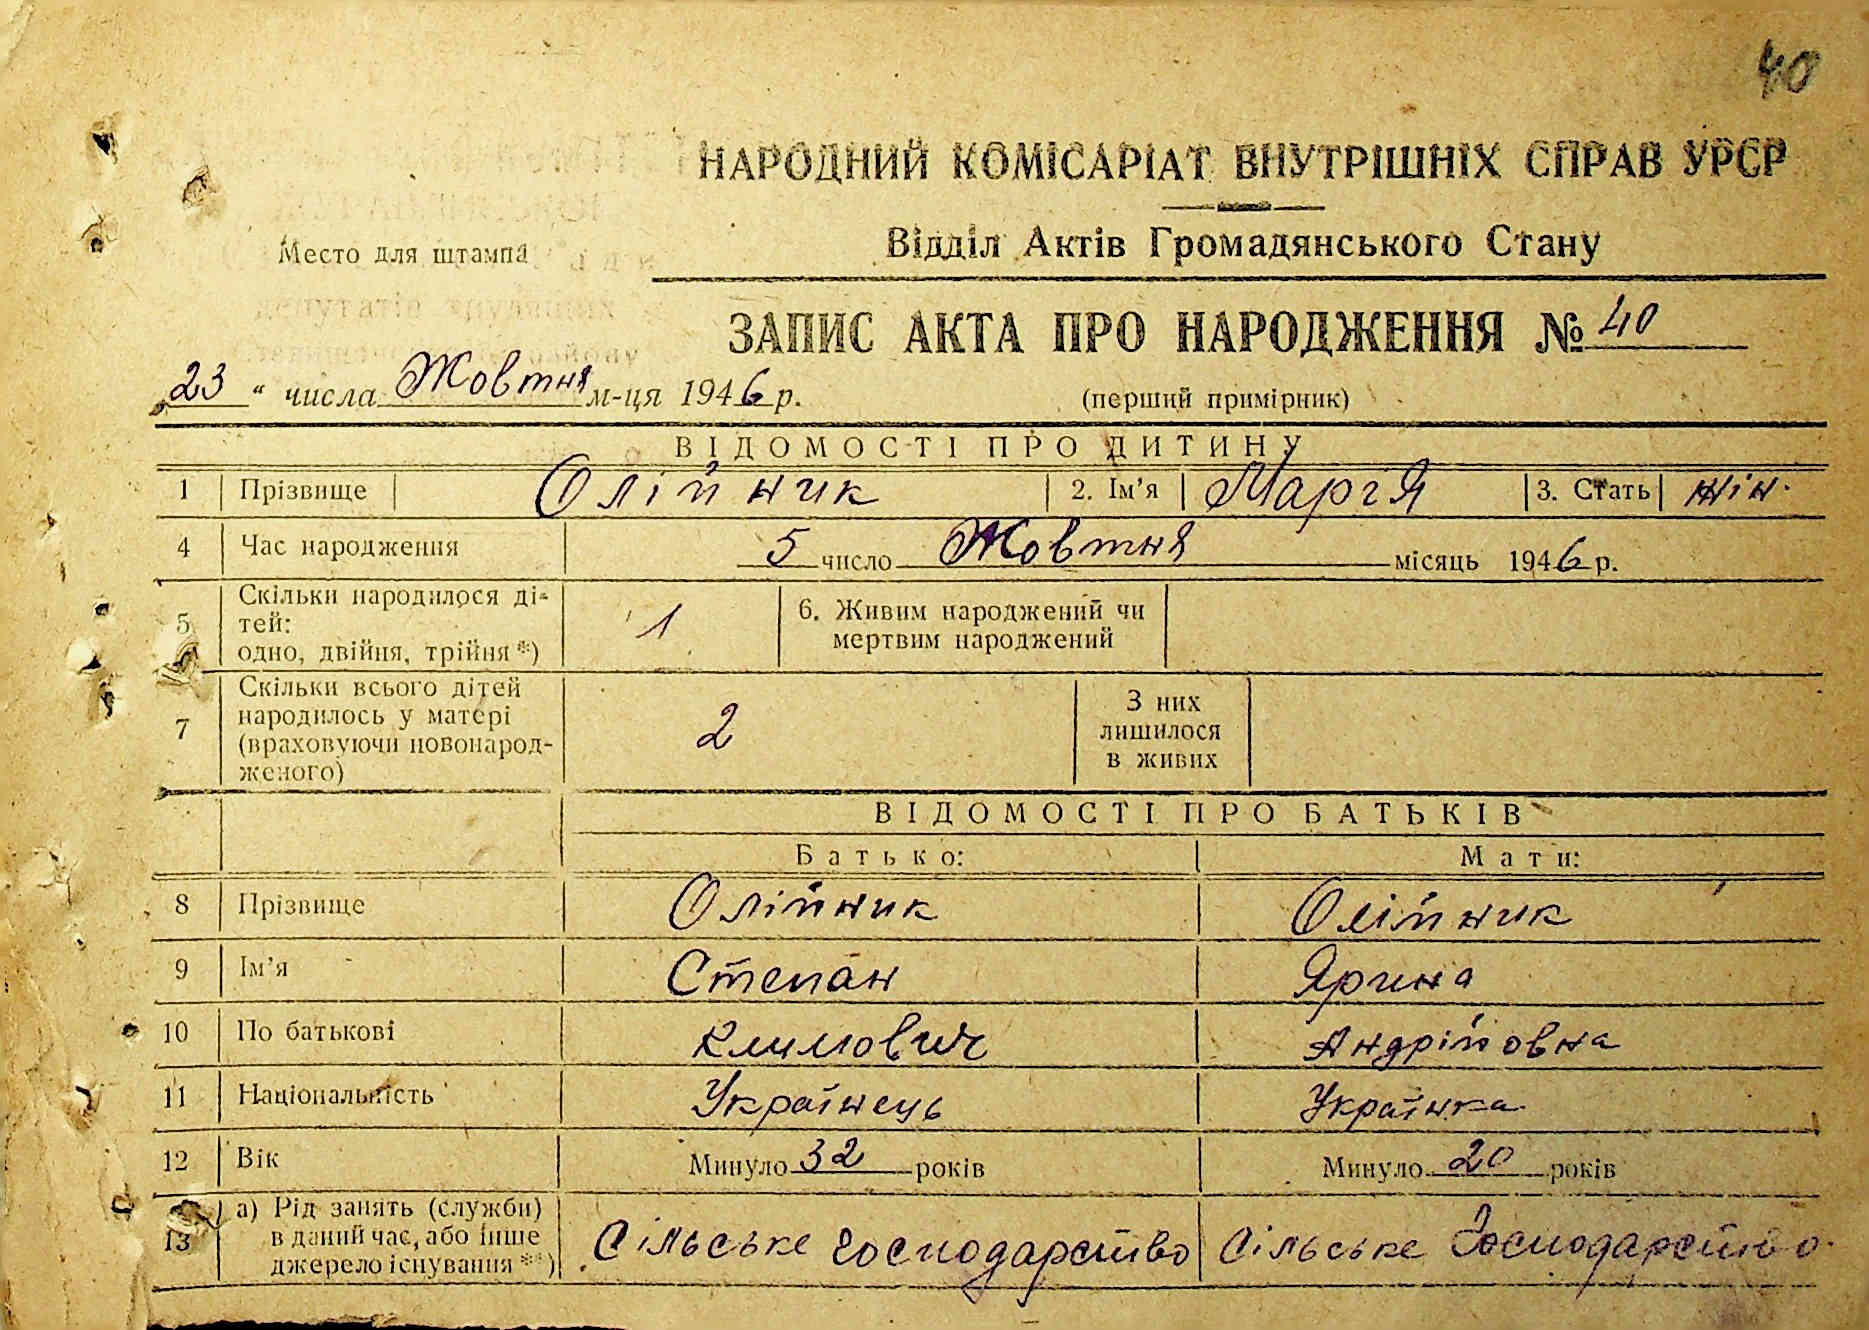 40
НАРОДНИЙ КОМІСАРІАТ ВНУТРІШНІХ СПРАВ УРСР
Место для штампа
Відділ Актів Громадянського Стану
ЗАПИС АКТА ПРО НАРОДЖЕННЯ № 40
„23“ числа Жовтня м-ця 1946 р.
(перший примірник)
ВІДОМОСТІ ПРО ДИТИНУ
1 Прізвище Олійник 2. Ім’я Марія 3. Стать жін.
4 Час народження 5 число Жовтня місяць 1946 р.
5 Скільки народилося ді-
тей:
одно, двійня, трійня *)
1
6. Живим народжений чи
мертвим народжений
7 Скільки всього дітей
народилось у матері
(враховуючи новонарод-
женого)
2
З них
лишилося
в живих
ВІДОМОСТІ ПРО БАТЬКІВ
Батько: Мати:
8 Прізвище Олійник Олійник
9 Ім’я Степан Ярина
10 По батькові Климович Андріївна
11 Національність Українець Українка
12 Вік Минуло 32 років Минуло 20 років
13 а) Рід занять (служби)
в даний час, або інше
джерело існування **)
Сільське господарство Сільське Господарство.